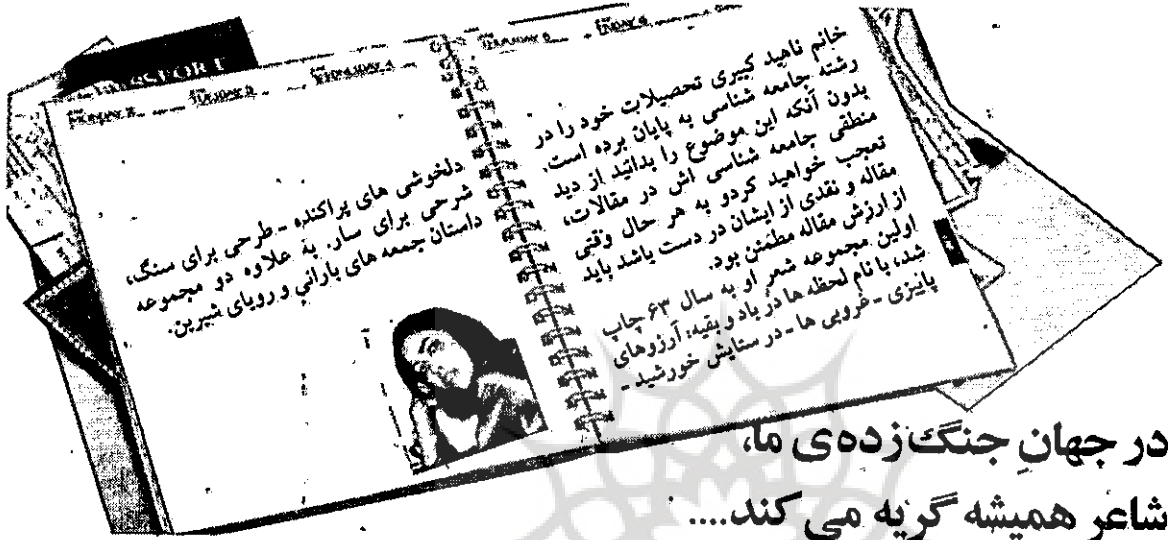 خانم ناهید کبیری تحصیلات خود را در
رشته جامعه شناسی به پایان برده است.
بدون آنکه این موضوع را بدانید از دید
منطقی جامعه شناسی اش در مقالات،
تعجب خواهید کردو به هر حال وقتی
مقاله و نقدی از ایشان در دست باشد باید
از ارزش مقاله مطمئن بود.
اولین مجموعه شعر او به سال ۶۳ چاپ
شد، با نام لحظه ها در باد و بقیه: آرزوهای
پاییزی - غروبی ها - در ستایش خورشید -
دلخوشی های پراکنده - طرحی برای سنگ،
شرحی برای سار. به علاوه دو مجموعه
داستان جمعه های بارانی و رویای شیرین.
در جهانِ جنگ‌زده‌ی ما،
شاعر همیشه گریه می کند....